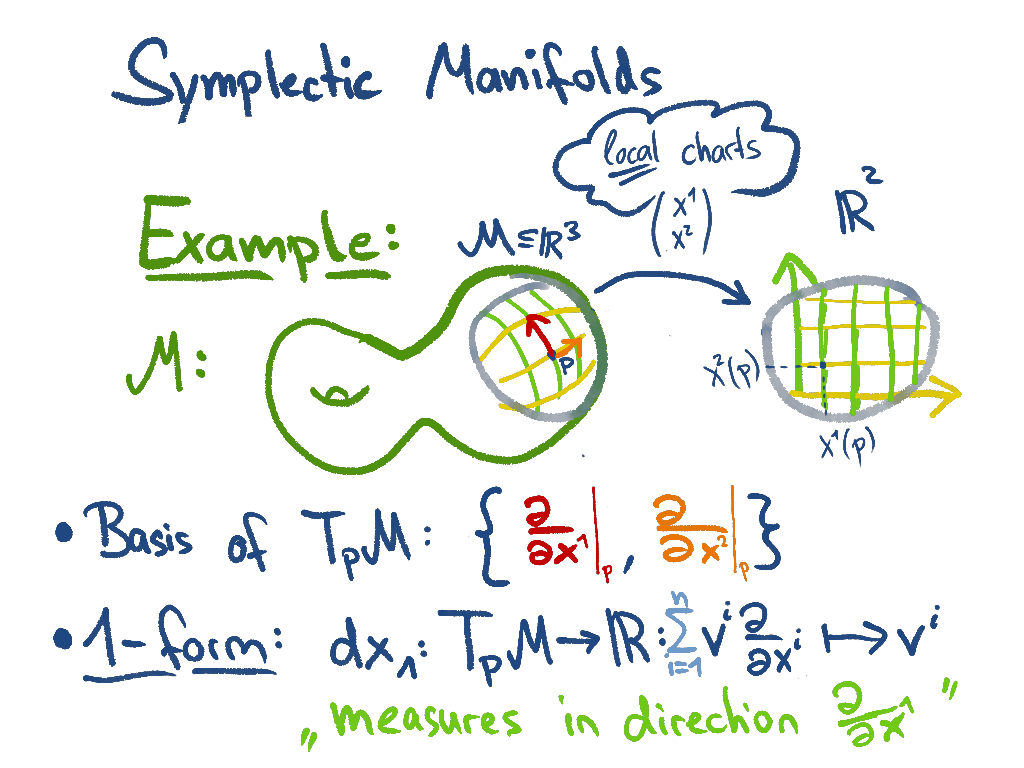 Symplectic Manifolds
local charts
(x¹ x²)
ℝ²
Example:
M ⊆ ℝ³
M:
p
x²(p)
x¹(p)
• Basis of TₚM: { ∂/∂x¹|ₚ , ∂/∂x²|ₚ }
• 1-form: dx₁: TₚM → ℝ: ∑ⁿᵢ₌₁ vⁱ ∂/∂xⁱ ↦ vⁱ
„measures in direction ∂/∂x¹ "